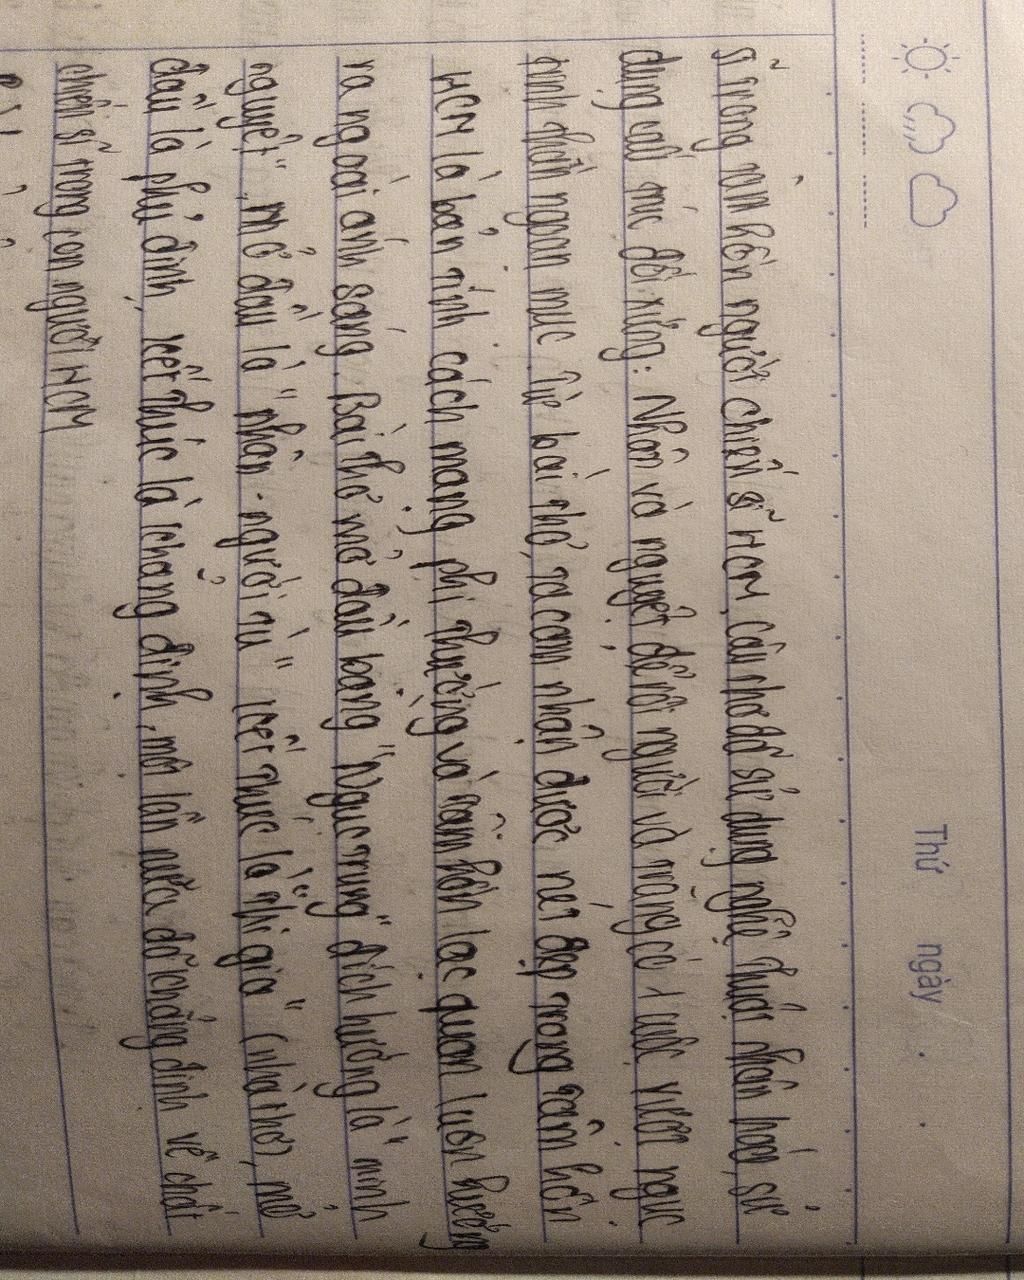 Thứ ngày
sĩ trong tâm hồn người chiến sĩ HCM, câu thơ đó sử dụng nghệ thuật nhân hoá, sử
dụng cấu trúc đối xứng: Nhân và nguyệt để rồi người và trăng có 1 cuộc vượt ngục
tinh thần ngoạn mục. Từ bài thơ, ta cảm nhận được nét đẹp trong tâm hồn
HCM là bản tính cách mạng phi thường và tâm hồn lạc quan luôn hướng
ra ngoài ánh sáng. Bài thơ mở đầu bằng "Ngục trung" đích hướng là "minh
nguyệt", mở đầu là "nhân - người tù" kết thúc là "thi gia" (nhà thơ), mở
đầu là phủ định, kết thúc là khẳng định, một lần nữa đã khẳng định về chất
chiến sĩ trong con người HCM